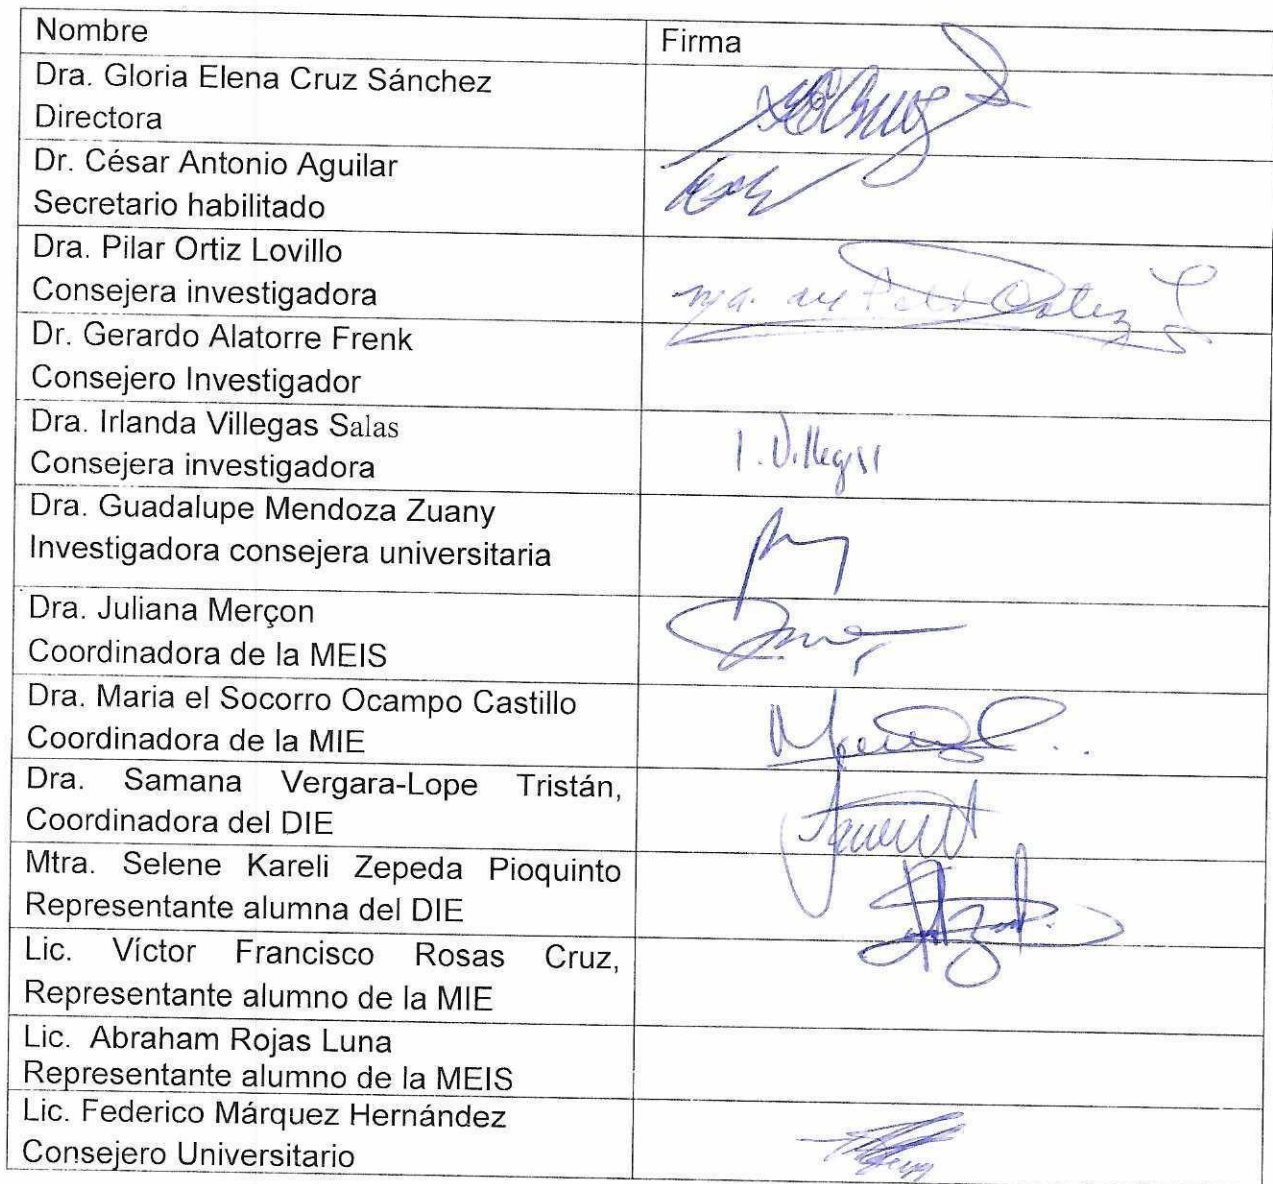 Nombre Firma
Dra. Gloria Elena Cruz Sánchez
Directora
Dr. César Antonio Aguilar
Secretario habilitado
Dra. Pilar Ortiz Lovillo
Consejera investigadora
Dr. Gerardo Alatorre Frenk
Consejero Investigador
Dra. Irlanda Villegas Salas
Consejera investigadora
I. Villegas
Dra. Guadalupe Mendoza Zuany
Investigadora consejera universitaria
Dra. Juliana Merçon
Coordinadora de la MEIS
Dra. Maria el Socorro Ocampo Castillo
Coordinadora de la MIE
Dra. Samana Vergara-Lope Tristán,
Coordinadora del DIE
Mtra. Selene Kareli Zepeda Pioquinto
Representante alumna del DIE
Lic. Víctor Francisco Rosas Cruz,
Representante alumno de la MIE
Lic. Abraham Rojas Luna
Representante alumno de la MEIS
Lic. Federico Márquez Hernández
Consejero Universitario